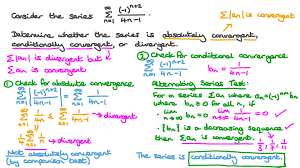 Consider the series $\sum_{n=1}^{\infty} \frac{(-1)^{n+2}}{4n-1}$.
Determine whether the series is absolutely convergent,
conditionally convergent, or divergent.
Σ|an| is convergent
Σ|an| is divergent but
Σan is convergent
① Check for absolute convergence
$\sum_{n=1}^{\infty} \left|\frac{(-1)^{n+2}}{4n-1}\right| = \sum_{n=1}^{\infty} \frac{1}{4n-1}$
→ divergent
→ divergent
Not absolutely convergent
(by comparison test)
② Check for conditional convergence
$\sum_{n=1}^{\infty} \frac{(-1)^{n+2}}{4n-1}$ $b_n = \frac{1}{4n-1}$
Alternating Series Test:
For a series Σan where an=(-1)ⁿbn
where bn≥0 for all n, if
• lim n→∞ bn = 0
• {bn} is a decreasing sequence
then Σan is convergent
The series is conditionally convergent.